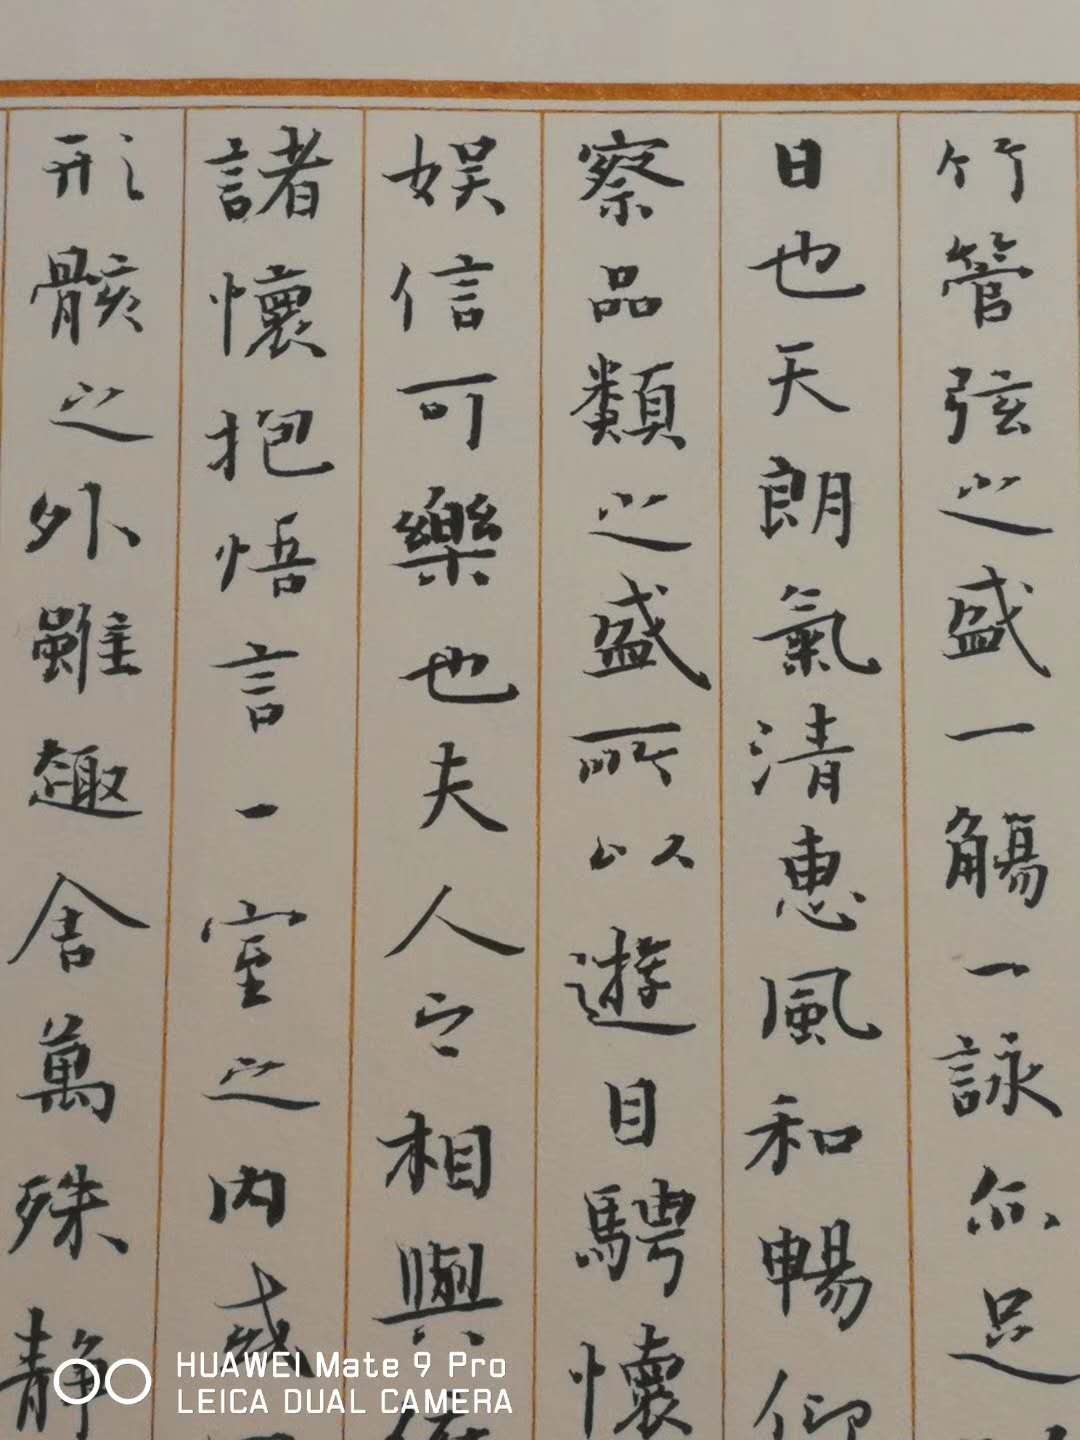 竹管弦之盛一觴一詠亦足
日也天朗氣清惠風和暢仰
察品類之盛所以遊目騁懷
娱信可樂也夫人之相與俯
諸懷抱悟言一室之内或
形骸之外雖趣舍萬殊静
HUAWEI Mate 9 Pro
LEICA DUAL CAMERA